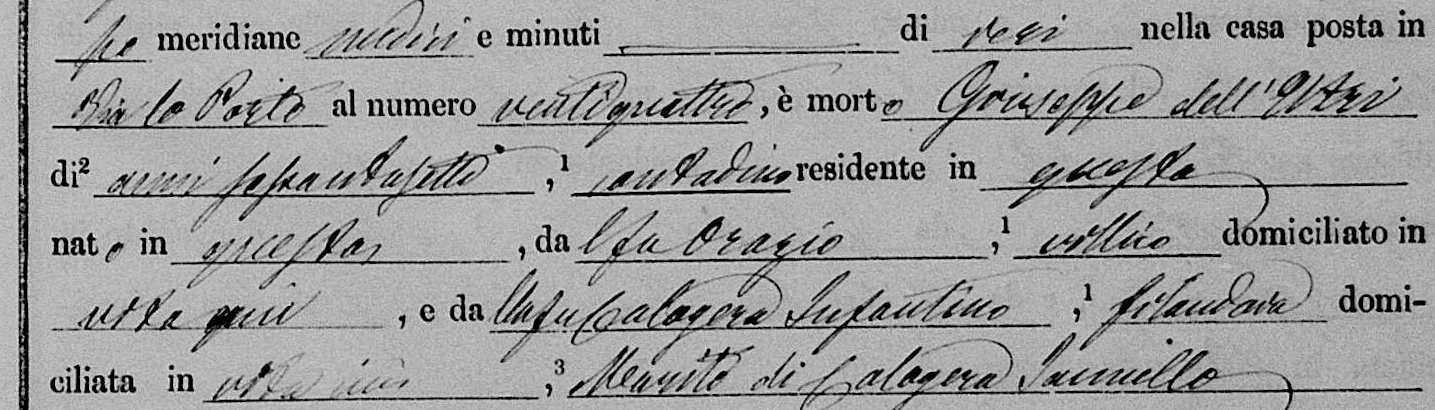 po meridiane undici e minuti di ieri nella casa posta in
Via lo Posto al numero ventiquattro, è morto Giuseppe dell'Utri
di² anni sessantasette ,¹ contadino residente in questa
nato in questa , da l fu Orazio ,¹ villico domiciliato in
vita qui , e da lla fu Calogera Infantino ,¹ filandara domi-
ciliata in vita qui ,³ Marito di Calogera Iannello